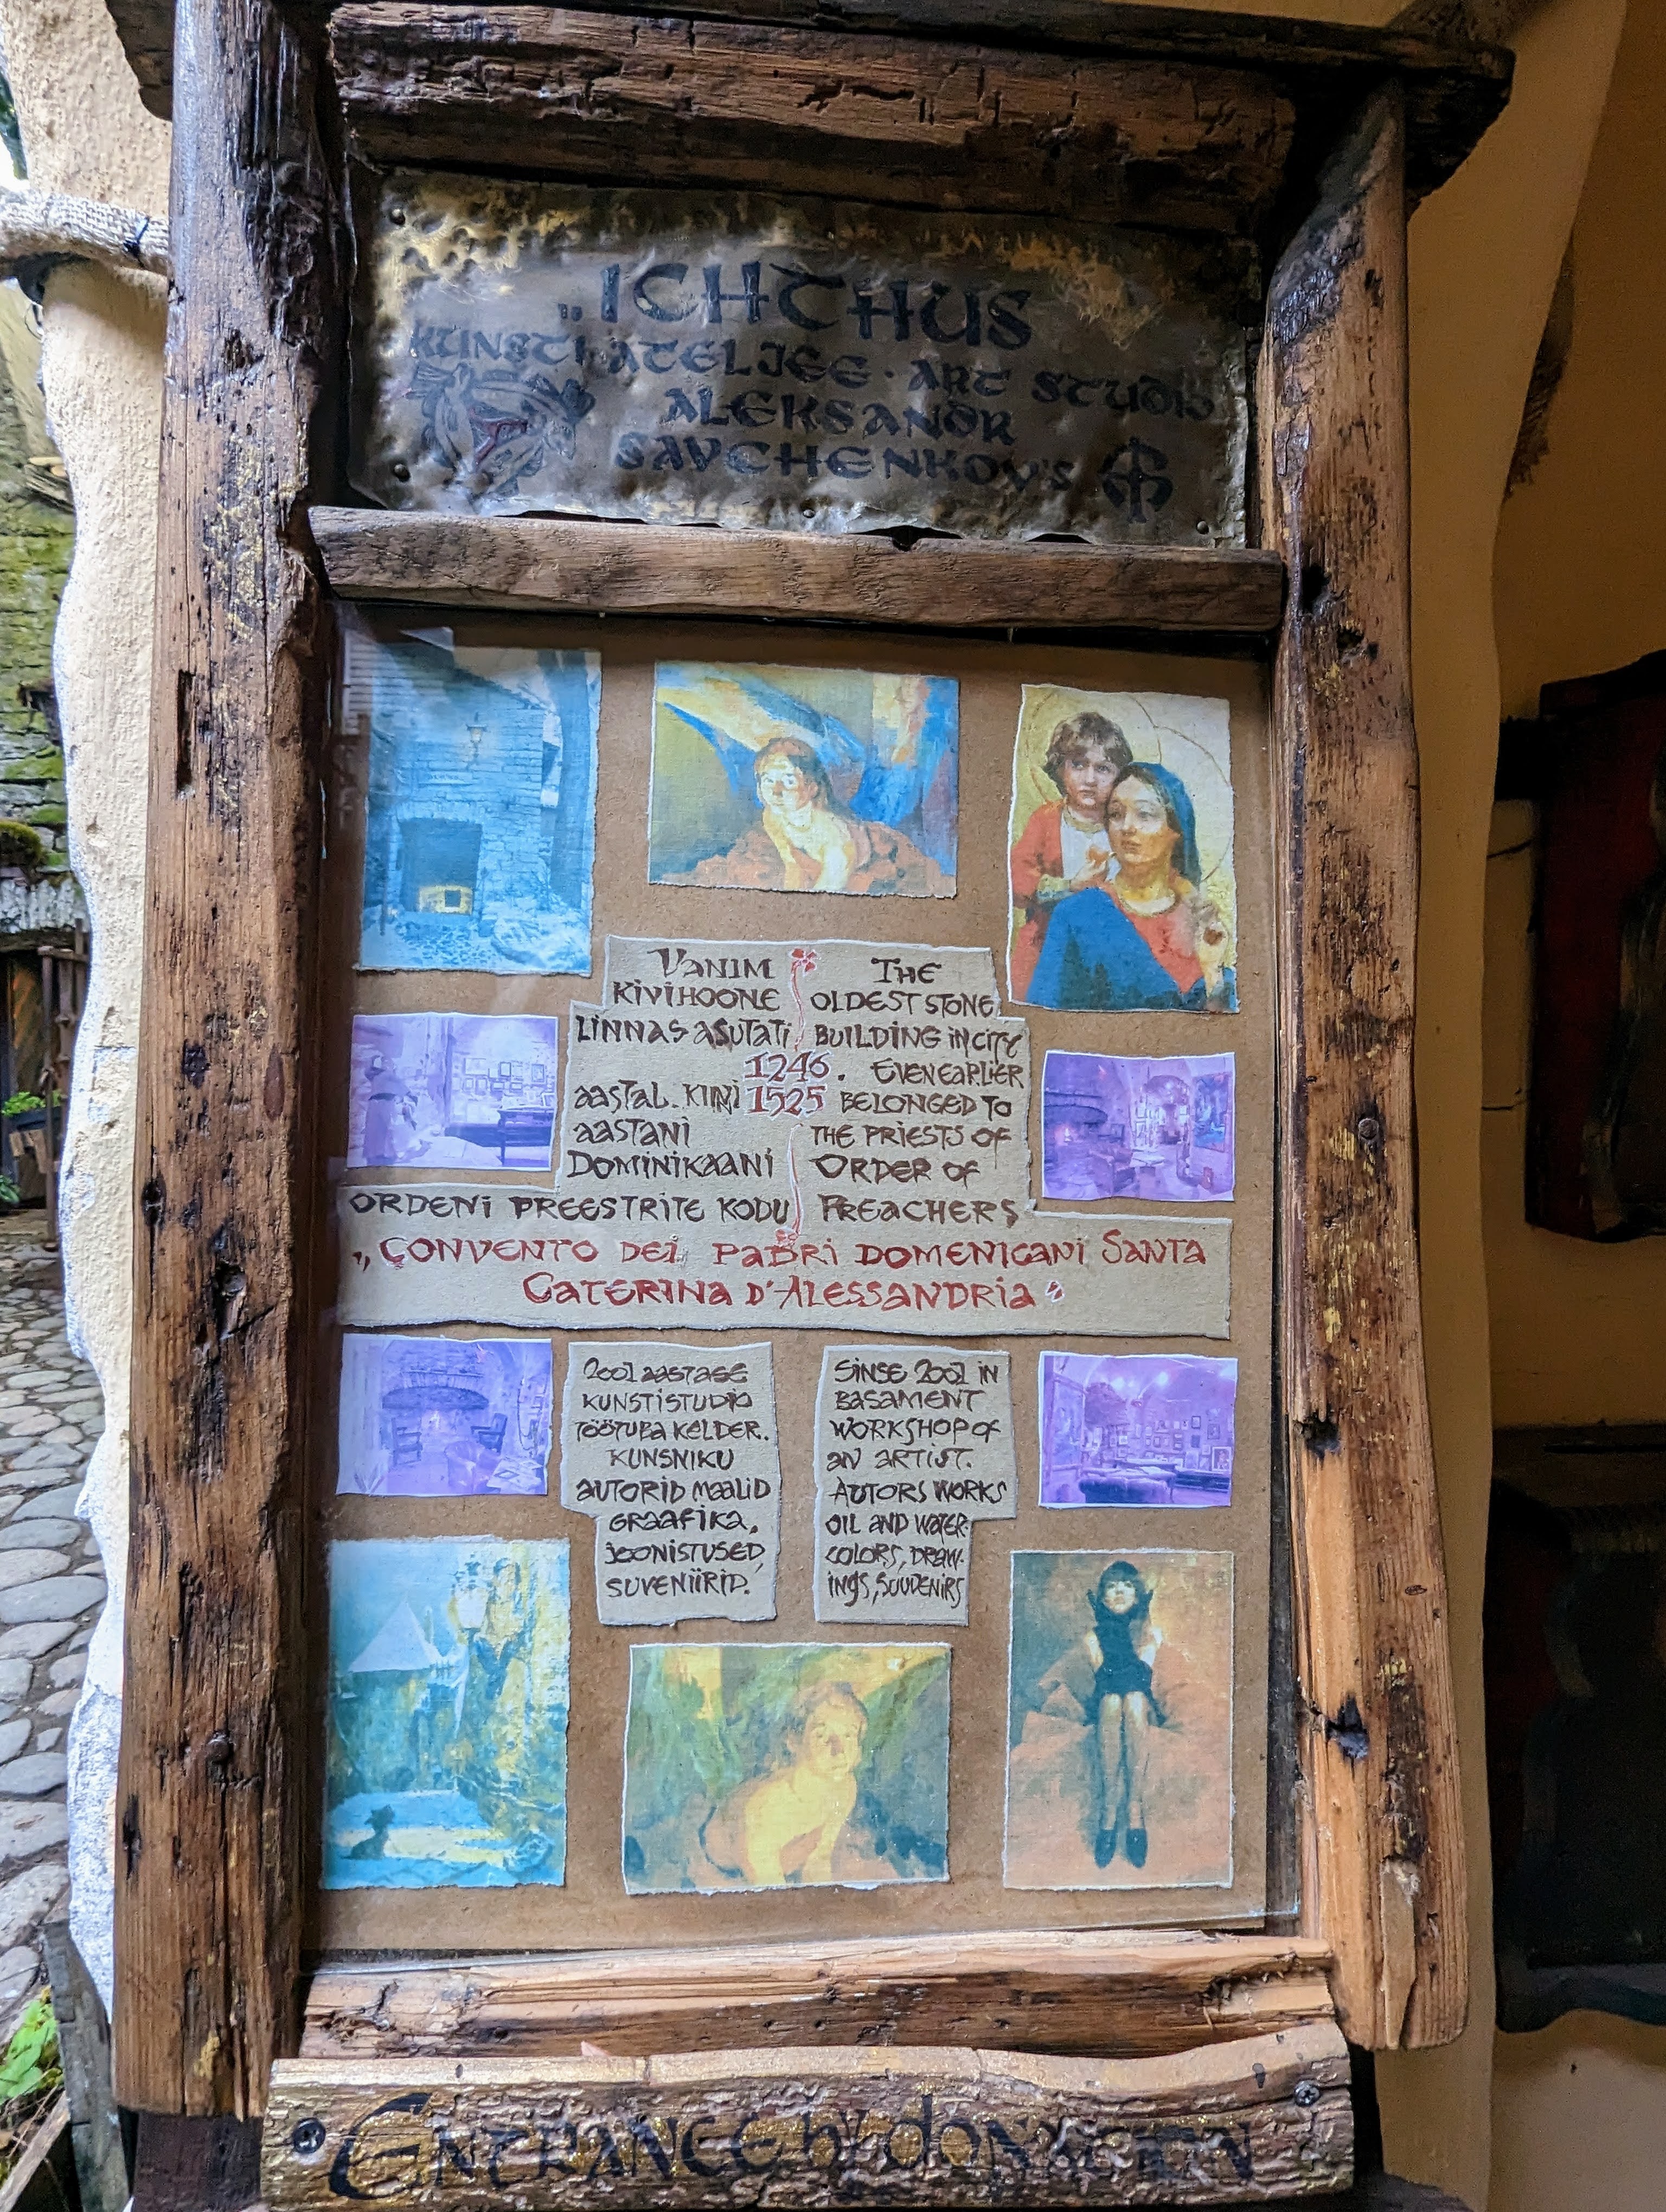 „ICHTHUS
KUNSTI ATELJEE · ART STUDIO
ALEKSANDR
SAVCHENKOV'S
VANIM
KIVIHOONE
LINNAS ASUTATI
1246.
AASTAL. KINI 1525
AASTANI
DOMINIKAANI
ORDENI PREESTRITE KODU
THE
OLDEST STONE
BUILDING IN CITY
EVEN EARLIER
BELONGED TO
THE PRIESTS OF
ORDER OF
PREACHERS
„CONVENTO DEI PADRI DOMENICANI SANTA
CATERINA D'ALESSANDRIA"
2001 AASTASE
KUNSTISTUDIO
TÖÖTUBA KELDER.
KUNSNIKU
AUTORID MAALID
GRAAFIKA,
JOONISTUSED,
SUVENIIRID.
SINSE 2001 IN
BASAMENT
WORKSHOP OF
AN ARTIST.
AUTORS WORKS
OIL AND WATER-
COLORS, DRAW-
INGS, SOUDENIRS
ENTRANCE BY DONATION